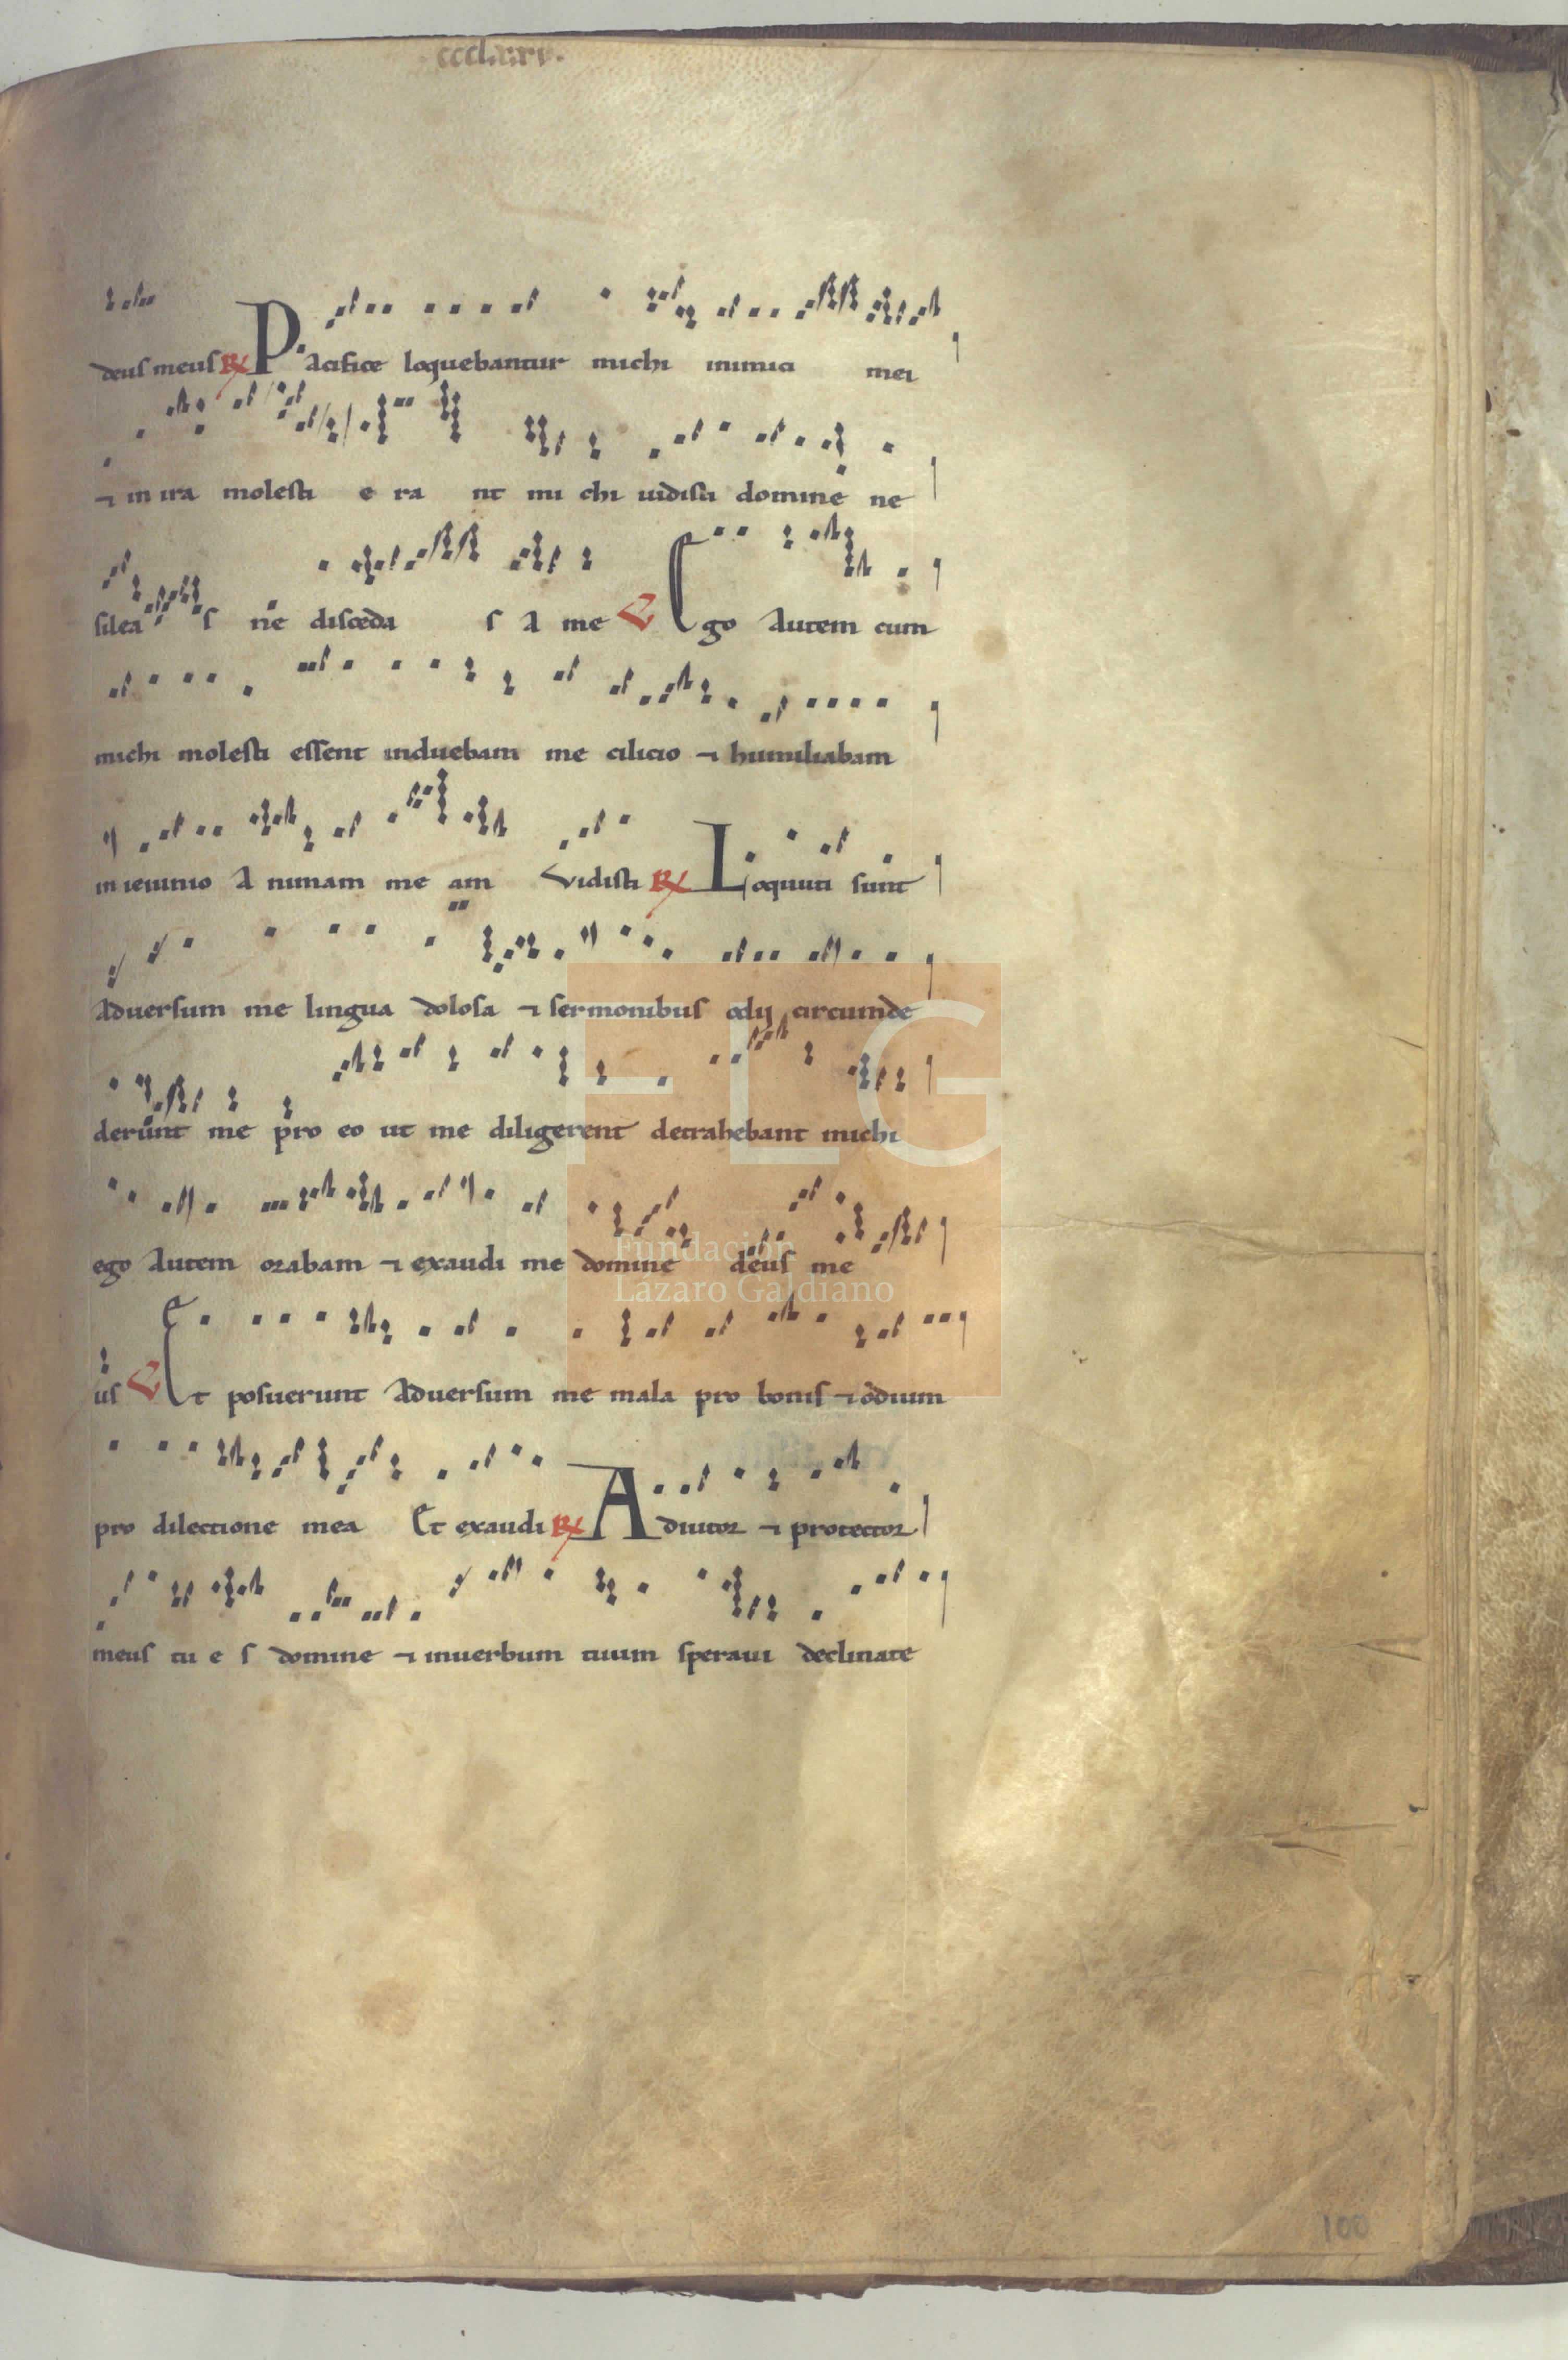 deus meus R Pacifice loquebantur michi inimici mei
⁊ in ira molesti e ra nt mi chi uidisti domine ne
silea s ne disceda s a me V Ego autem cum
michi molesti essent induebam me cilicio ⁊ humiliabam
in ieiunio a nimam me am Vidisti R Loquuti sunt
aduersum me lingua dolosa ⁊ sermonibus odij circumde
derunt me pro eo ut me diligerent detrahebant michi
ego autem orabam ⁊ exaudi me domine deus me
us V Et posuerunt aduersum me mala pro bonis ⁊ odium
pro dilectione mea Et exaudi R Adiutor ⁊ protector
meus tu e s domine ⁊ in uerbum tuum speraui declinate
FLG
Fundación
Lázaro Galdiano
100